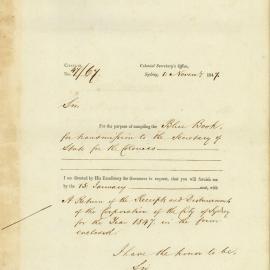 Circular
No. 47/67.
Colonial Secretary's Office,
Sydney, 11 Novemr 1847.
Sir,
For the purpose of compiling the Blue Book,
for transmission to the Secretary of
State for the Colonies
I am directed by His Excellency the Governor to request, that you will furnish me
by the 15 January next, with
A Return of the Receipts and Disbursements
of the Corporation of the City of Sydney
for the Year 1847 in the form
enclosed.
I have the honor to be,
Sir